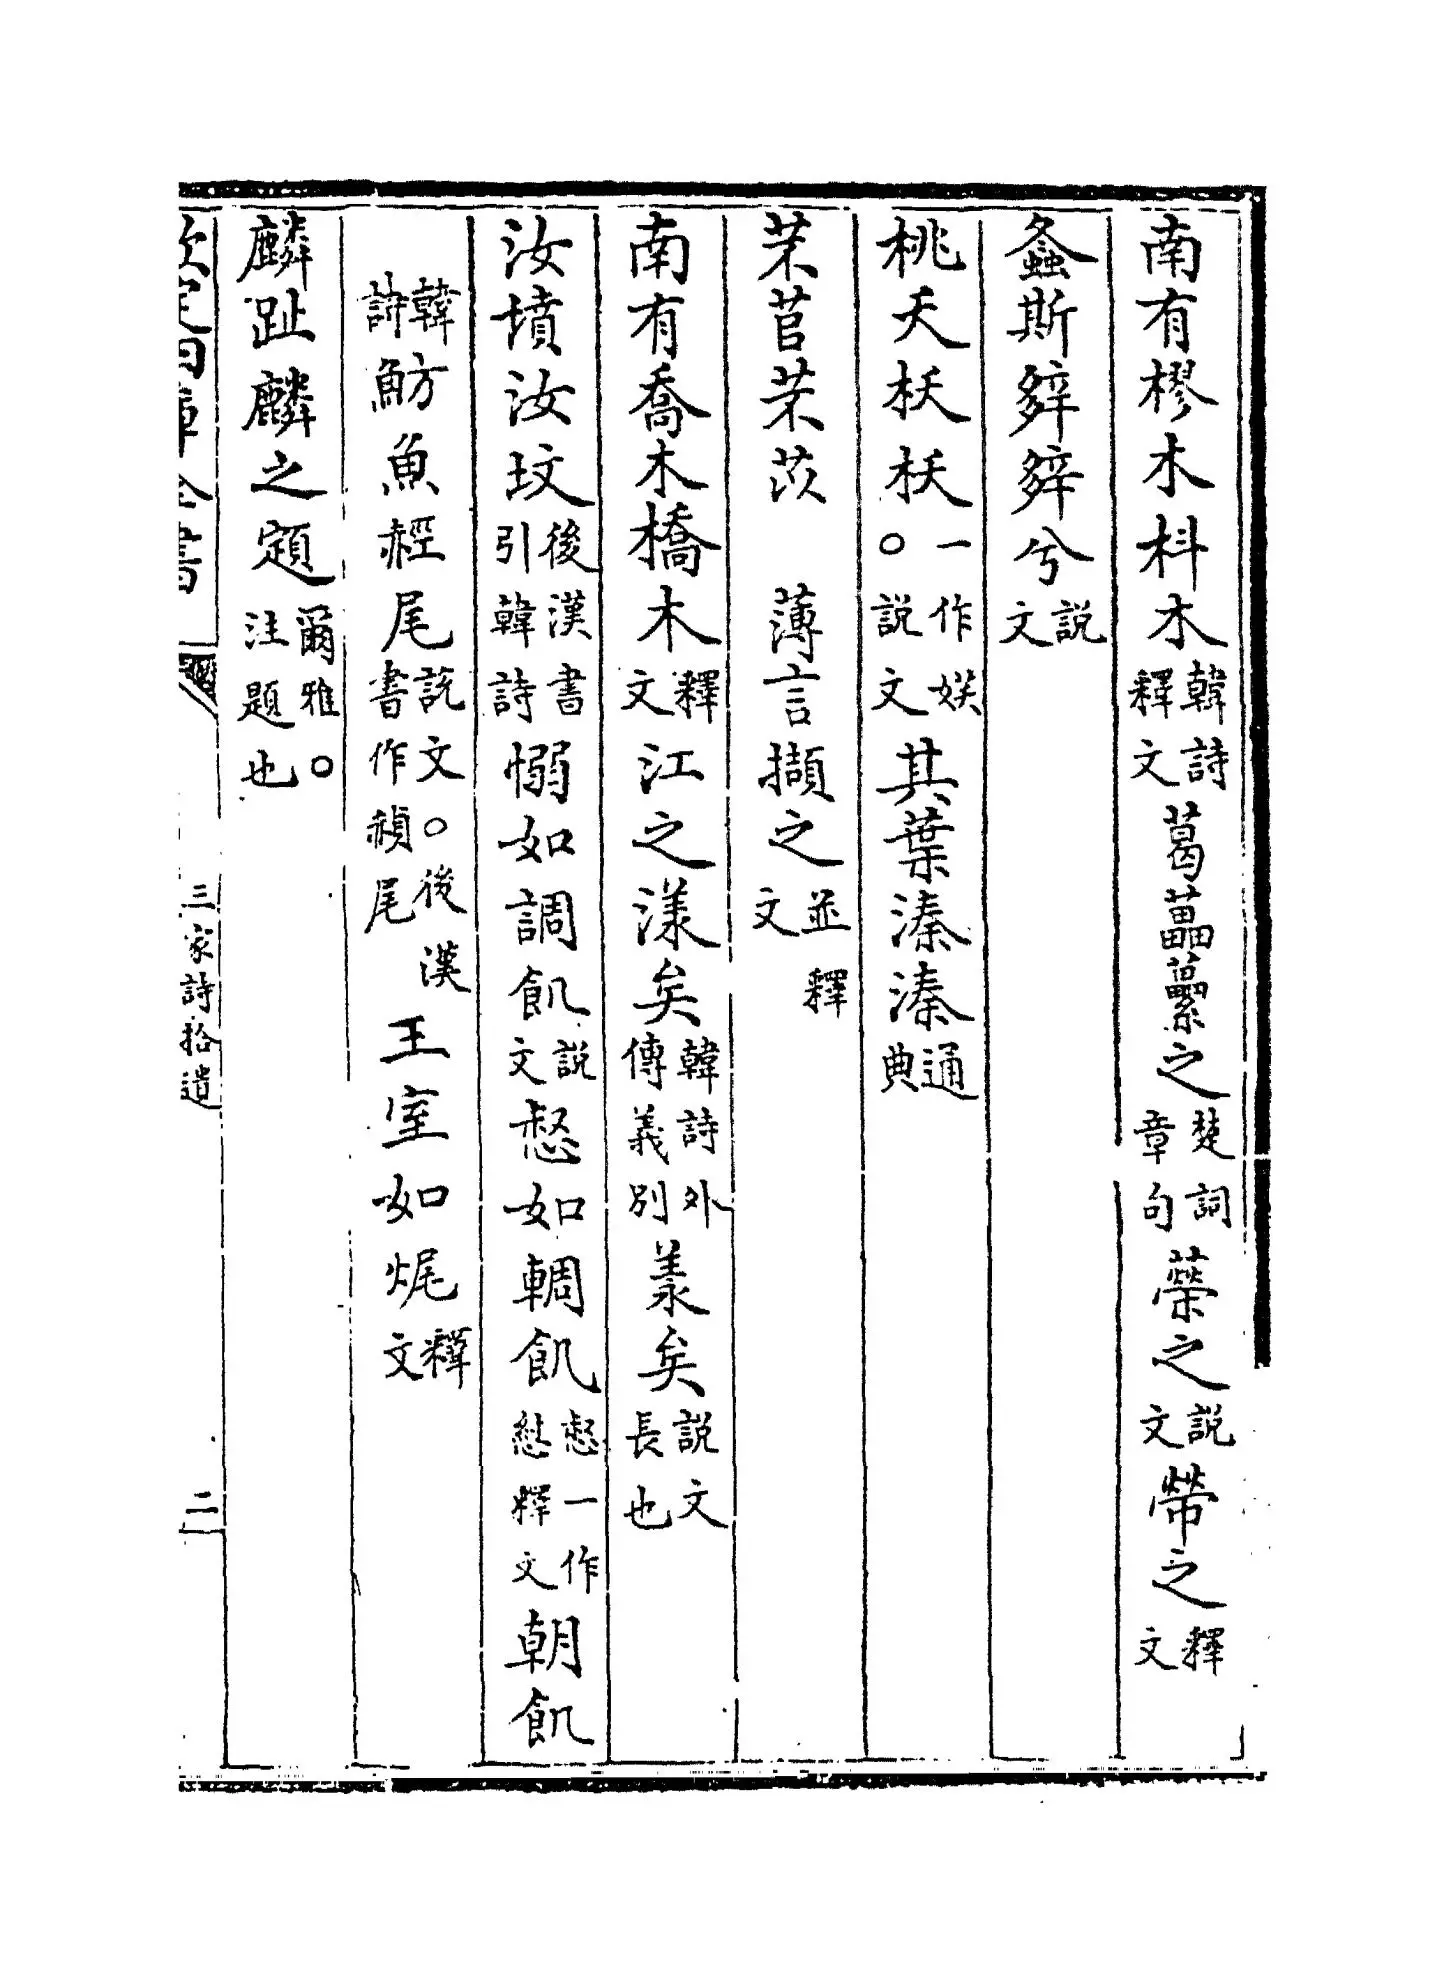 南有樛木枓木韓詩釋文葛藟虆之楚詞章句藥之説文帶之釋文
螽斯辤辤兮説文
桃夭枖枖一作娱○説文其葉溱溱通典
芣苢芣苡 薄言擷之並釋文
南有喬木橋木釋文江之漾矣韓詩外傳義別羕矣説文長也
汝墳汝坟後漢書引韓詩愵如調飢説文惄如輖飢惄一作𢠵釋文朝飢
韓詩魴魚䞓尾説文○後漢書作赬尾王室如㷄釋文
麟趾麟之顁爾雅○注題也
欽定四庫全書
三家詩拾遺
二